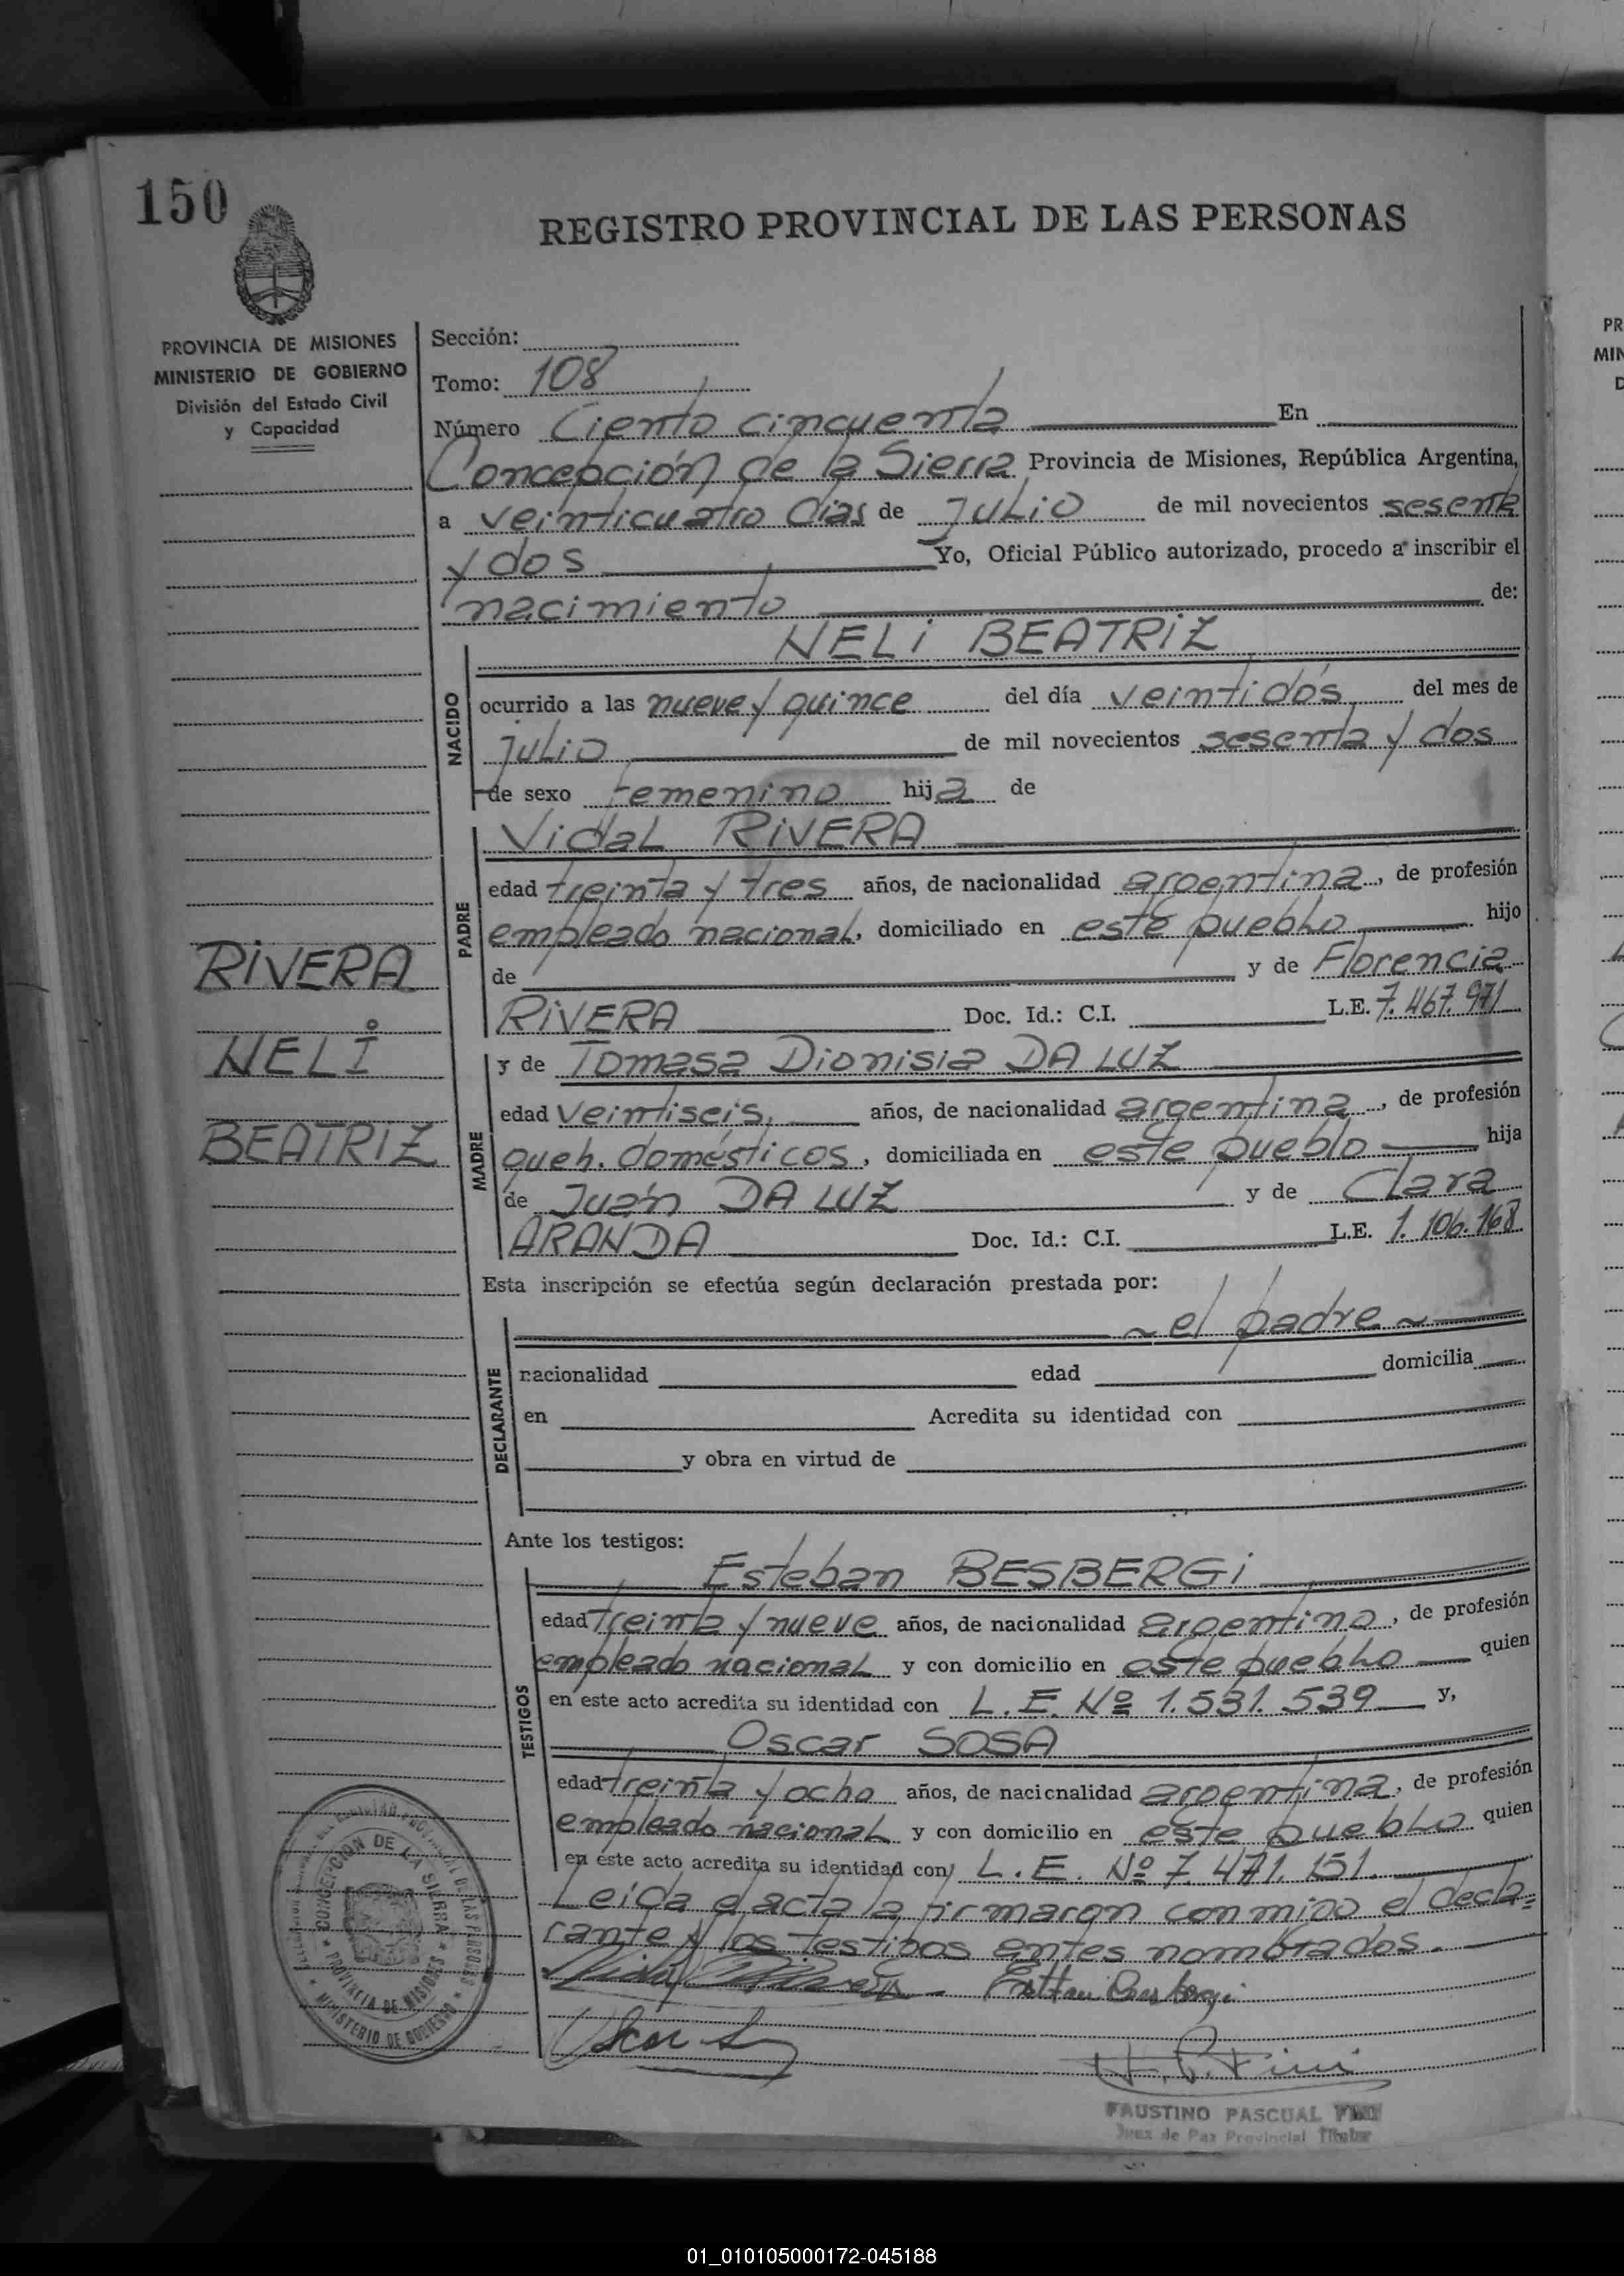 150
REGISTRO PROVINCIAL DE LAS PERSONAS
PROVINCIA DE MISIONES
MINISTERIO DE GOBIERNO
División del Estado Civil
y Capacidad
RIVERA
NELI
BEATRIZ
Sección:
Tomo: 108
Número Ciento cincuenta En
Concepción de la Sierra Provincia de Misiones, República Argentina,
a veinticuatro días de Julio de mil novecientos sesenta
y dos Yo, Oficial Público autorizado, procedo a inscribir el
nacimiento de:
NELI BEATRIZ
NACIDO
ocurrido a las nueve y quince del día veintidós del mes de
julio de mil novecientos sesenta y dos
de sexo femenino hija de
Vidal RIVERA
PADRE
edad treinta y tres años, de nacionalidad argentina, de profesión
empleado nacional, domiciliado en este pueblo hijo
de y de Florencia
RIVERA Doc. Id.: C.I. L.E. 7.467.971
y de Tomasa Dionisia DA LUZ
MADRE
edad veintiseis, años, de nacionalidad argentina, de profesión
queh. domésticos, domiciliada en este pueblo hija
de Juán DA LUZ y de Clara
ARANDA Doc. Id.: C.I. L.E. 1.106.168
Esta inscripción se efectúa según declaración prestada por:
~ el padre ~
DECLARANTE
nacionalidad edad domicilia
en Acredita su identidad con
y obra en virtud de
Ante los testigos:
Esteban BESBERGi
TESTIGOS
edad treinta y nueve años, de nacionalidad argentino, de profesión
empleado nacional y con domicilio en este pueblo quien
en este acto acredita su identidad con L.E. Nº 1.531.539 y,
Oscar SOSA
edad treinta y ocho años, de nacicnalidad argentina, de profesión
empleado nacional y con domicilio en este pueblo quien
en este acto acredita su identidad con L.E. Nº 7.471.151.
Leída el acta la firmaron conmigo el decla=
rante y los testigos antes nombrados.
Oscar S
F. P. Fini
FAUSTINO PASCUAL FINI
Juez de Paz Provincial Titular
CONCEPCION DE LA SIERRA
PROVINCIA DE MISIONES
MINISTERIO DE GOBIERNO
PR
MIN
D
01_010105000172-045188